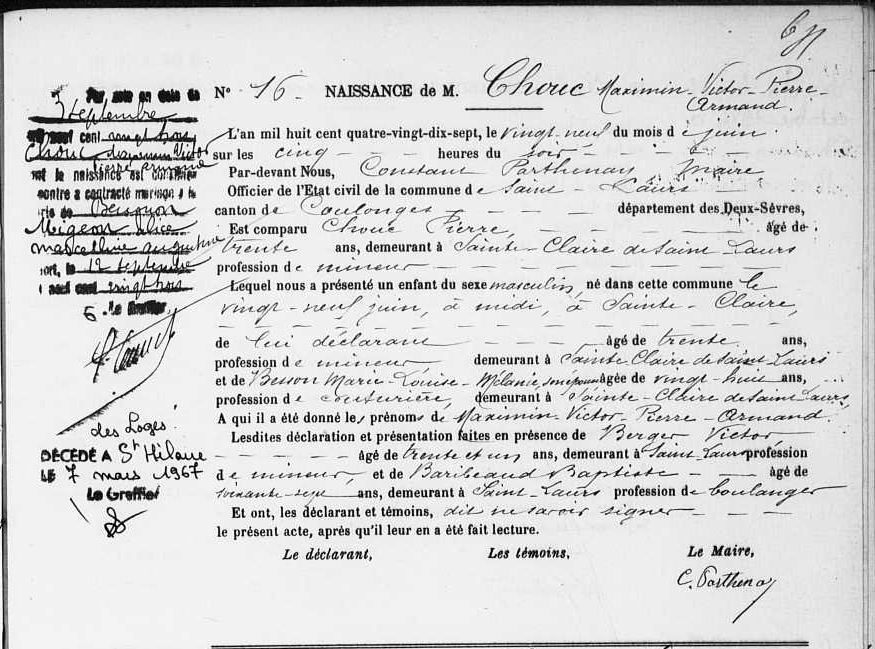 Nº 16. NAISSANCE de M. Chouc Maximin-Victor-Pierre-
Armand.
L'an mil huit cent quatre-vingt-dix-sept, le vingt-neuf du mois de juin
sur les cinq heures du soir
Par-devant Nous, Constant Parthenay Maire
Officier de l'Etat civil de la commune de Saint-Laurs
canton de Coulonges département des Deux-Sèvres,
Est comparu Chouc Pierre, âgé de
trente ans, demeurant à Sainte-Claire de Saint Laurs
profession de mineur
Lequel nous a présenté un enfant du sexe masculin, né dans cette commune le
vingt-neuf juin, à midi, à Sainte-Claire,
de lui déclarant âgé de trente ans,
profession de mineur demeurant à Sainte Claire de Saint Laurs
et de Besson Marie-Louise-Mélanie, son épouse âgée de vingt-huit ans,
profession de couturière, demeurant à Sainte-Claire de Saint-Laurs
A qui il a été donné les prénoms de Maximin-Victor-Pierre-Armand.
Lesdites déclaration et présentation faites en présence de Berger Victor
âgé de trente et un ans, demeurant à Saint-Laurs profession
de mineur, et de Baribeaud Baptiste âgé de
soixante-sept ans, demeurant à Saint Laurs profession de boulanger
Et ont, les déclarant et témoins, dit ne savoir signer
le présent acte, après qu'il leur en a été fait lecture.
Le déclarant, Les témoins, Le Maire,
C. Parthenay
Par acte en date du
3 septembre
mil neuf cent vingt trois
Chouc Maximin Victor
Pierre Armand
dont la naissance est constatée
ci-contre a contracté mariage à la
Mairie de
Migeon Alice
Marcelline Augustine
Niort, le 12 septembre
mil neuf cent vingt trois
Le Greffier,
des Loges
DÉCÉDÉ A St Hilaire
LE 7 mars 1967
Le Greffier